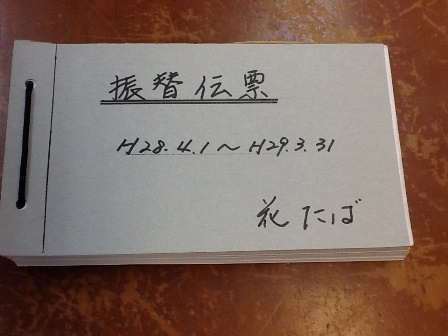 振替伝票
H28.4.1～H29.3.31
花たば